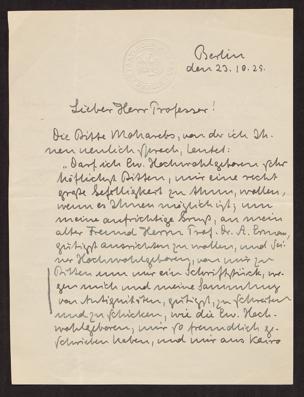 Berlin
den 23.10.25.
Lieber Herr Professor!
Die Bitte Moharebs, von der ich Ih-
nen neulich sprach, lautet:
„Darf ich Ew. Hochwohlgeboren sehr
höflichst bitten, mir eine recht
große Gefälligkeit zu thun, wollen,
wenn es Ihnen möglich ist; um
meine aufrichtige Gruß, an mein
alter Freund Herrn Prof. Dr. A. Erman,
gütigst ausrichten zu wollen, und Sei-
ner Hochwohlgeboren, von mir zu
bitten um mir ein Schriftstück, we-
gen mich und meine Sammlung
von Antiquitäten, gütigst, zu schreiben
und zu schicken, wie die Ew. Hoch-
wohlgeboren, mir so freundlich ge-
schrieben haben, und mir aus Kairo